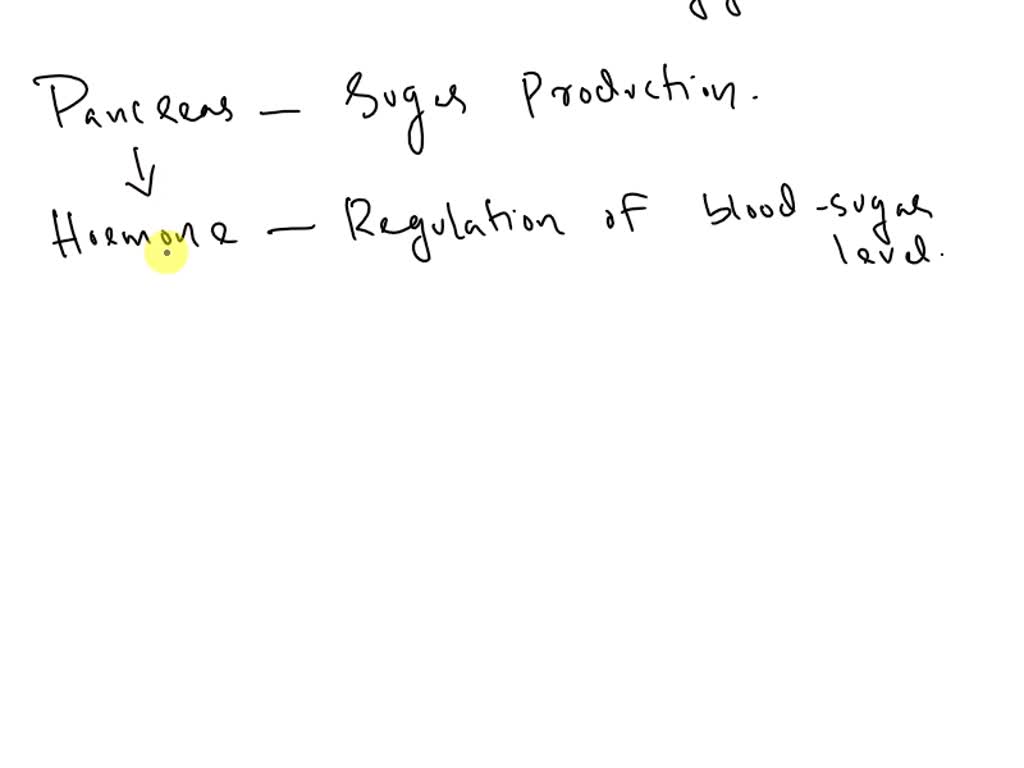 Pancreas — Sugar Production.
↓
Hormone — Regulation of blood-sugar
level.